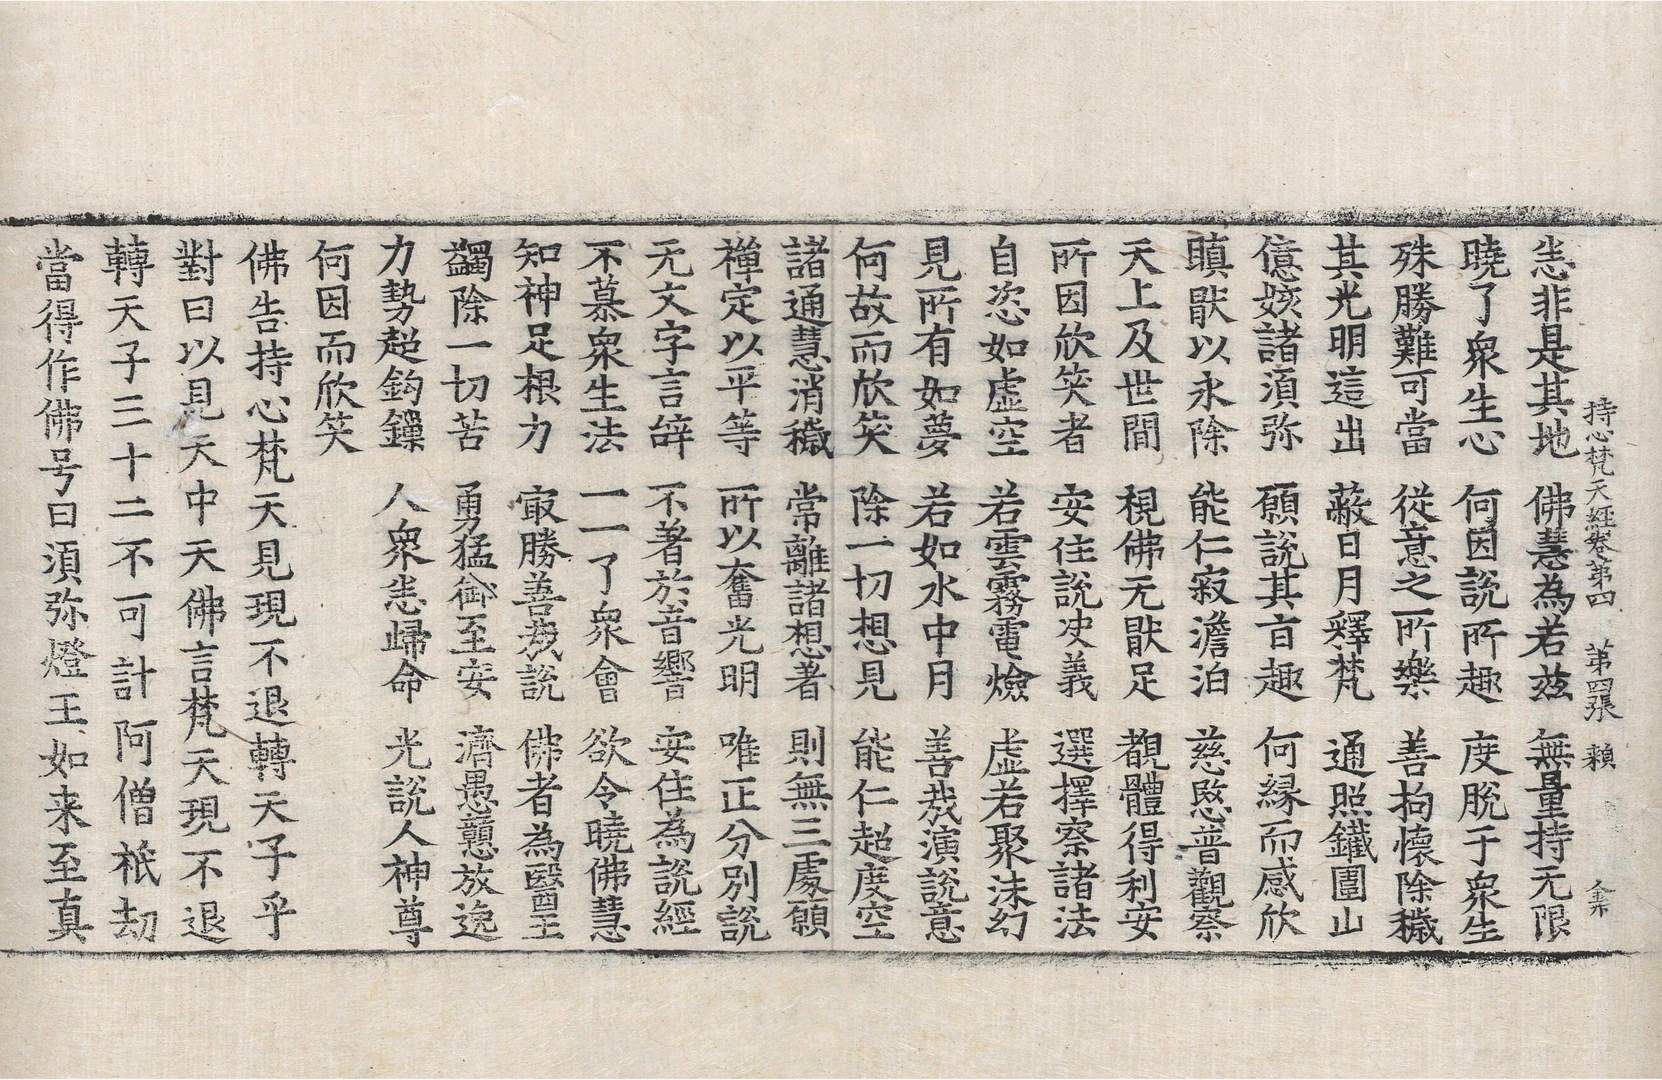 持心梵天經卷第四　第四張　賴
恙非是其地　佛慧為若茲　無量持无限
曉了衆生心　何因說所趣　度脫于衆生
殊勝難可當　從意之所樂　善拘懷除穢
其光明這出　蔽日月釋梵　通照鐵圍山
億姟諸湏弥　願說其㫖趣　何縁而感欣
瞋猒以永除　能仁寂澹泊　慈愍普觀察
天上及世間　視佛无猒足　覩體得利安
所因欣笑者　安住說决義　選擇察諸法
自恣如虛空　若雲霧電燄　虛若聚沫幻
見所有如夢　若如水中月　善哉演說意
何故而欣笑　除一切想見　能仁超度空
諸通慧消穢　常離諸想著　則無三處願
禪定以平等　所以奮光明　唯正分別說
无文字言辤　不著於音響　安住為說經
不慕衆生法　一一了衆會　欲令曉佛慧
知神足根力　寂勝善哉說　佛者為醫王
蠲除一切苦　勇猛御至安　濟愚戇放逸
力勢超鈎鏁　人衆恙歸命　光說人神尊
何因而欣笑
佛告持心梵天見現不退轉天子乎
對曰以見天中天佛言梵天現不退
轉天子三十二不可計阿僧祇劫
當得作佛号曰湏弥燈王如来至真